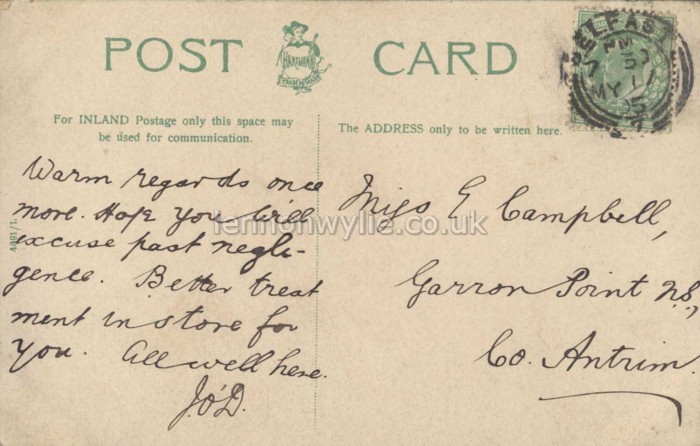 POST CARD
HARTMANN
TRADE MARK
BELFAST
MY 11
05
For INLAND Postage only this space may
be used for communication.
The ADDRESS only to be written here.
4001/1
Warm regards once
more. Hope you will
excuse past negli-
gence. Better treat
ment in store for
you. All well here.
J.O'D.
Miss E Campbell,
Garron Point N.S.,
Co. Antrim.
lennonwylie.co.uk